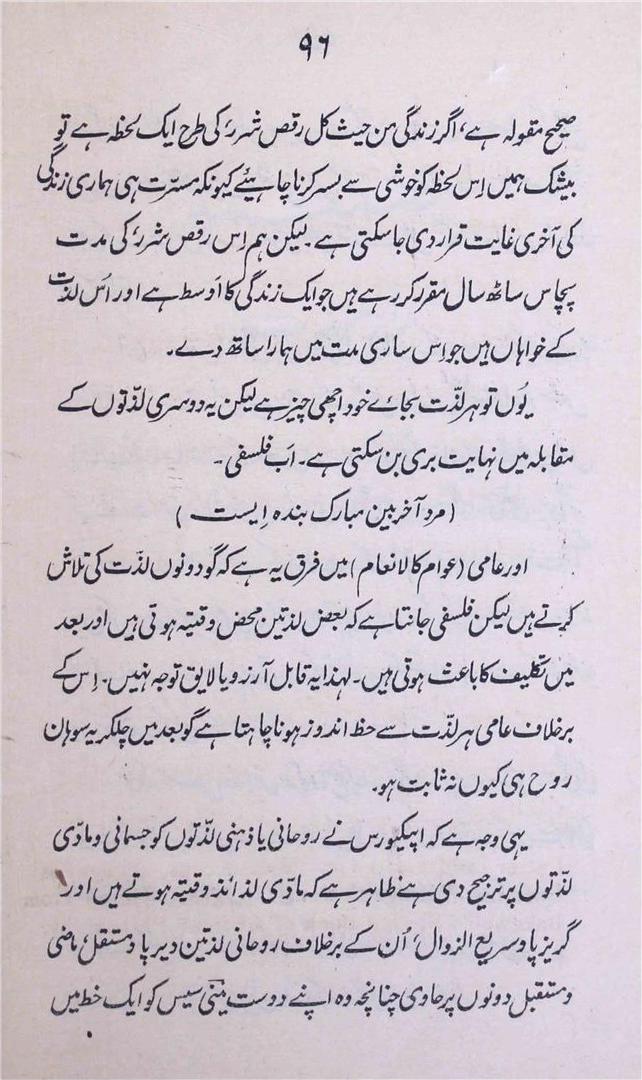 ۹۶
صحیح مقولہ ہے، اگر زندگی من حیث کل رقص شرر، کی طرح ایک لحظہ ہے تو
بیشک ہمیں اِس لحظہ کو خوشی سے بسر کرنا چاہیئے کیونکہ مسرّت ہی ہماری زندگی
کی آخری غایت قرار دی جا سکتی ہے۔ لیکن ہم اِس رقص شرر، کی مدت
پچاس ساٹھ سال مقرر کر رہے ہیں جو ایک زندگی کا اَوسط ہے اور اُس لذّت
کے خواہاں ہیں جو اِس ساری مدت میں ہمارا ساتھ دے۔
یُوں تو ہر لذّت بجائے خود اچھی چیز ہے لیکن یہ دوسری لذّتوں کے
مقابلہ میں نہایت بری بن سکتی ہے۔ اَب فلسفی۔
(مرد آخر بین مبارک بندہ اِیست)
اور عامی (عوام کالانعام) میں فرق یہ ہے کہ گو دونوں لذّت کی تلاش
کرتے ہیں لیکن فلسفی جانتا ہے کہ بعض لذتین محض وقتیہ ہوتی ہیں اور بعد
میں تکلیف کا باعث ہوتی ہیں۔ لہذا یہ قابل آرزو یا لایق توجہ نہیں۔ اِس کے
برخلاف عامی ہر لذّت سے حظ اندوز ہونا چاہتا ہے گو بعد میں چلکر یہ سوہان
روح ہی کیوں نہ ثابت ہو۔
یہی وجہ ہے کہ اپیکیورس نے روحانی یا ذہنی لذّتوں کو جسمانی و مادّی
لذّتوں پر ترجیح دی ہے ظاہر ہے کہ مادّی لذائذ وقتیہ ہوتے ہیں اور
گریز پا و سریع الزوال، اُن کے برخلاف روحانی لذتین دیر پا و مستقل، ماضی
و مستقبل دونوں پر حاوی چنانچہ وہ اپنے دوست مینی سیس کو ایک خط میں